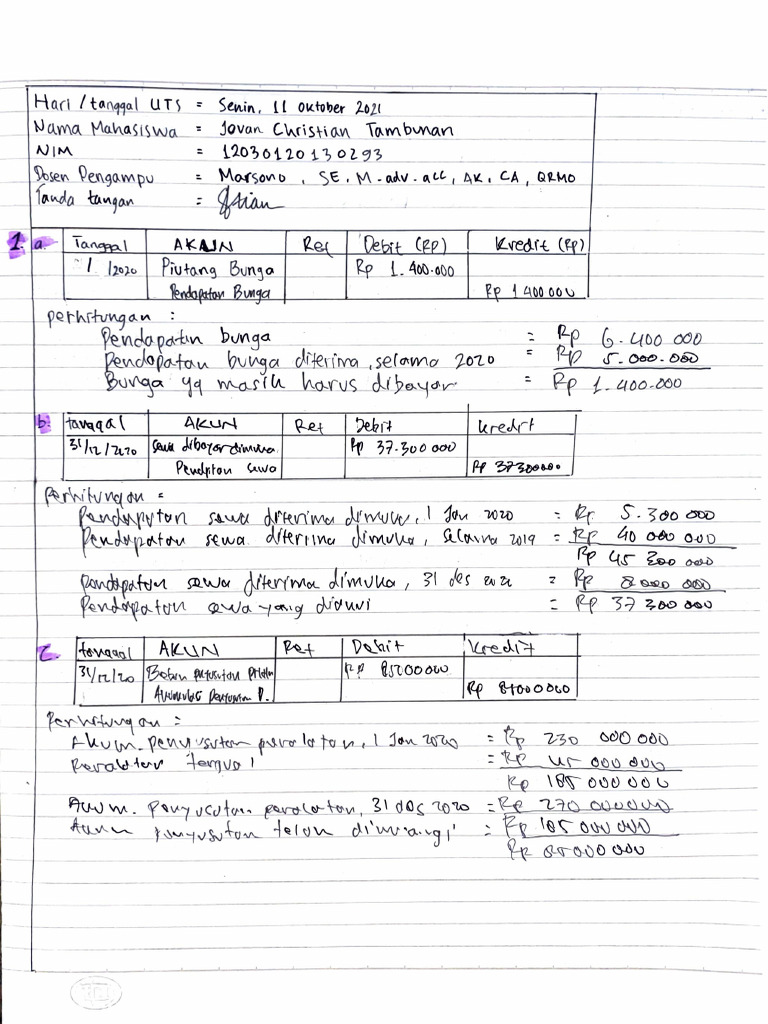 Hari / tanggal UTS = Senin, 11 Oktober 2021
Nama Mahasiswa = Jovan Christian Tambunan
NIM = 12030120130293
Dosen Pengampu = Marsono, SE, M.adv.acc, AK, CA, QRMO
Tanda tangan =
1. a. Tanggal AKAUN Ref Debit (Rp) Kredit (Rp)
1 /2020 Piutang Bunga Rp 1.400.000
Pendapatan Bunga Rp 1 400 000
perhitungan :
Pendapatan bunga = Rp 6.400 000
Pendapatan bunga diterima, selama 2020 = Rp 5.000.000
Bunga yg masih harus dibayar = Rp 1.400.000
b. tanggal AKUN Ref Debit kredit
31/12/2020 Sewa dibayar dimuka Rp 37.300 000
Pendptan sewa Rp 37300000
Perhitungan =
Pendapatan sewa diterima dimuka, 1 Jan 2020 = Rp 5.300 000
Pendapatan sewa diterima dimuka, selama 2019 = Rp 40 000 000
Rp 45 300 000
Pendapatan sewa diterima dimuka, 31 des = Rp 8000 000
Pendapatan sewa yang = Rp 37 300 000
c. tanggal AKUN Ref Debit kredit
31/12/20 Beban Rp
Rp
Perhitungan :
Akum. penyusutan peralatan, 1 Jan 2020 = Rp 230 000 000
Peralatan = Rp 45 000 000
Rp 185 000 000
Akum. penyusutan peralatan, 31 des 2020 = Rp 270 000000
Akum penyusutan telah = Rp 185 000 000
Rp 85 000 000